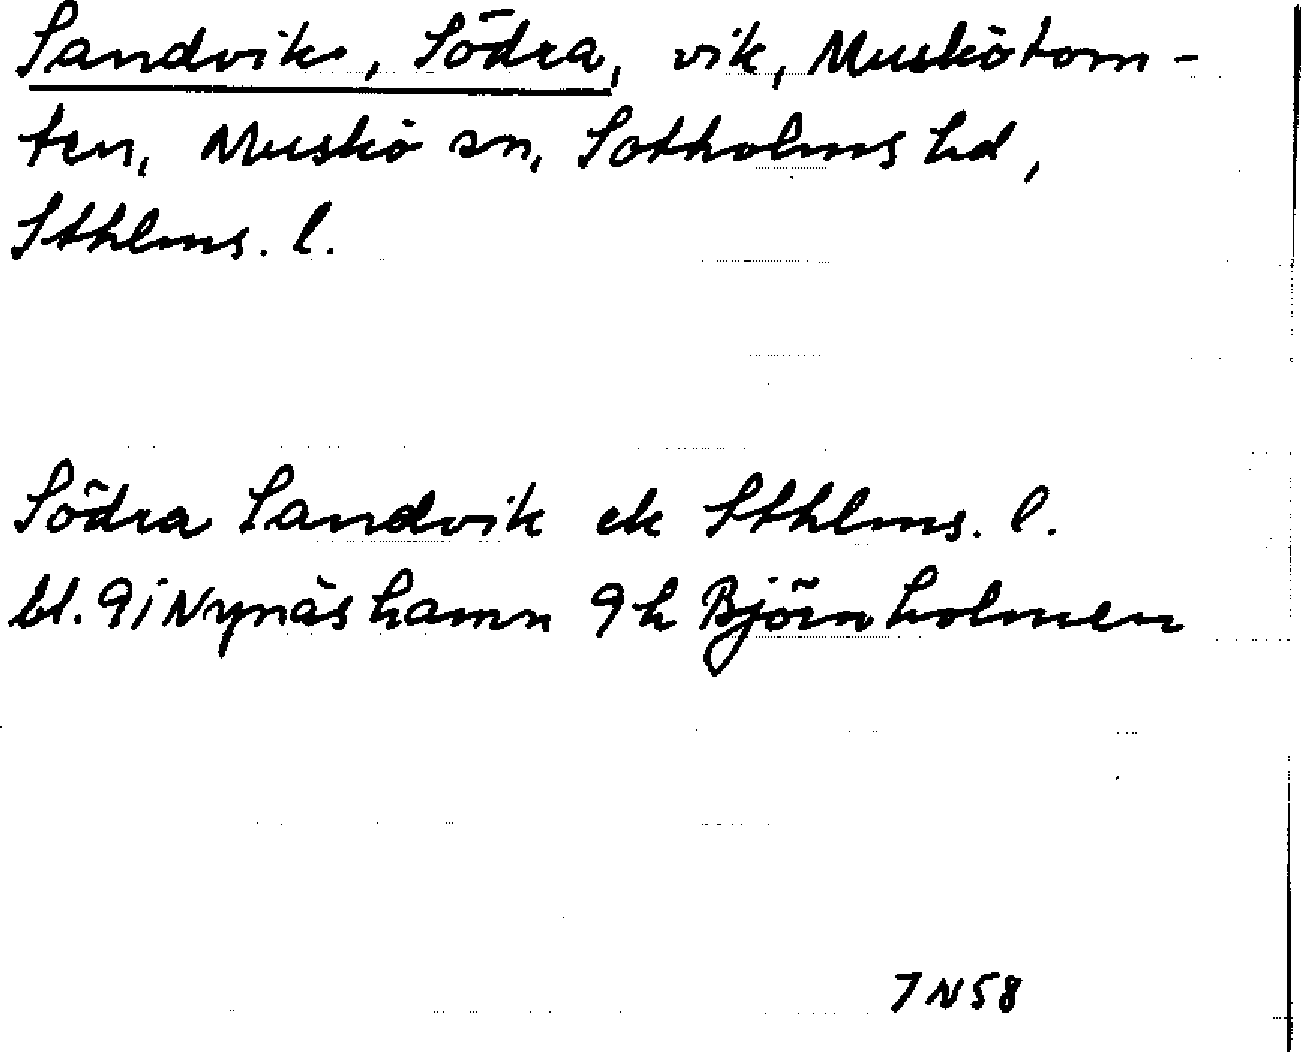 Sandvik, Södra, vik, Muskötom-
ten, Muskö sn, Sotholms hd,
Sthlms. l.
Södra Sandvik ek Sthlms. l.
bl. 9i Nynäshamn 9h Björnholmen
7 N 58